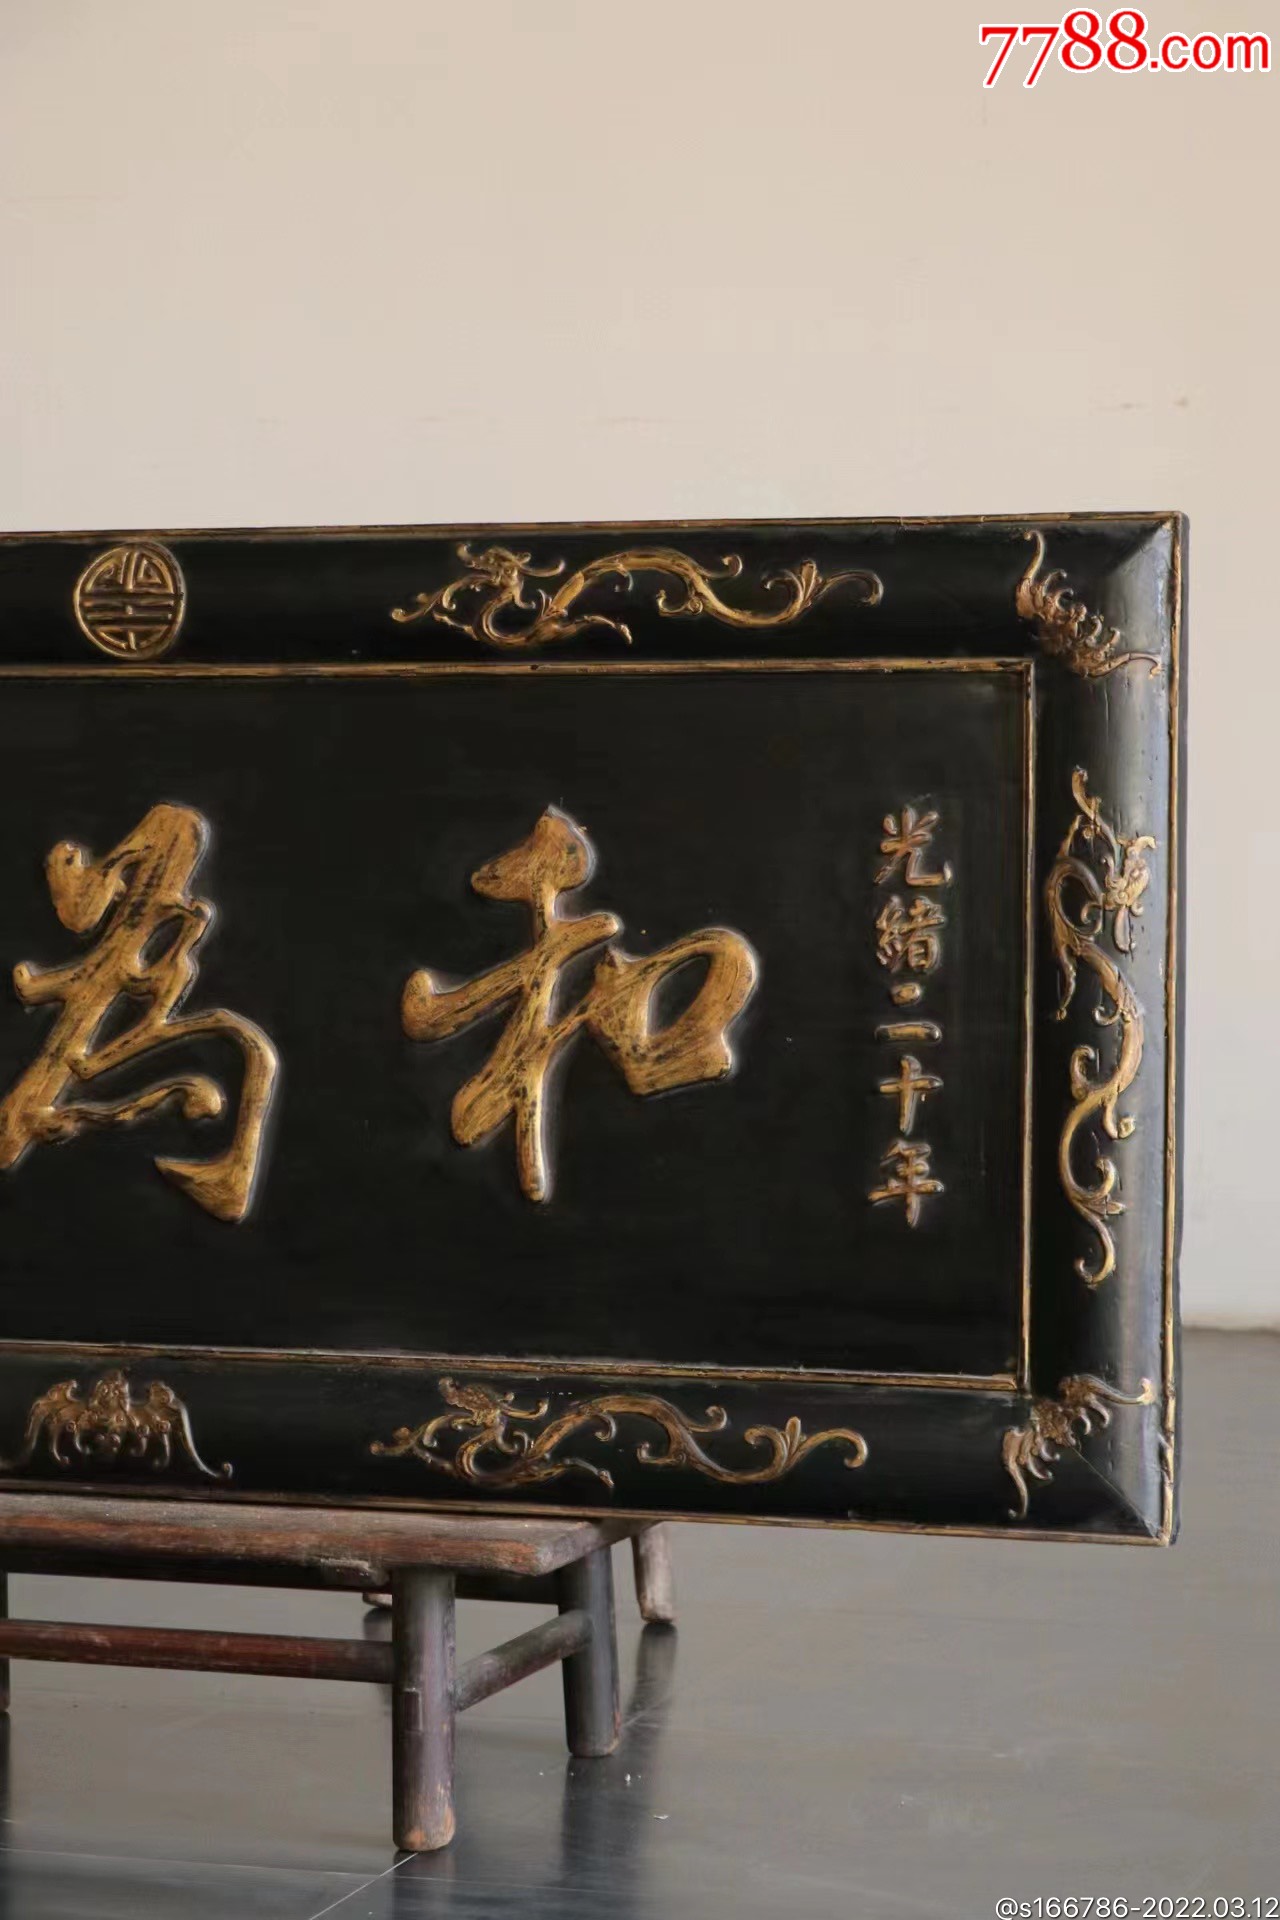 7788.com
光緒二十年
和為
@s166786-2022.03.12